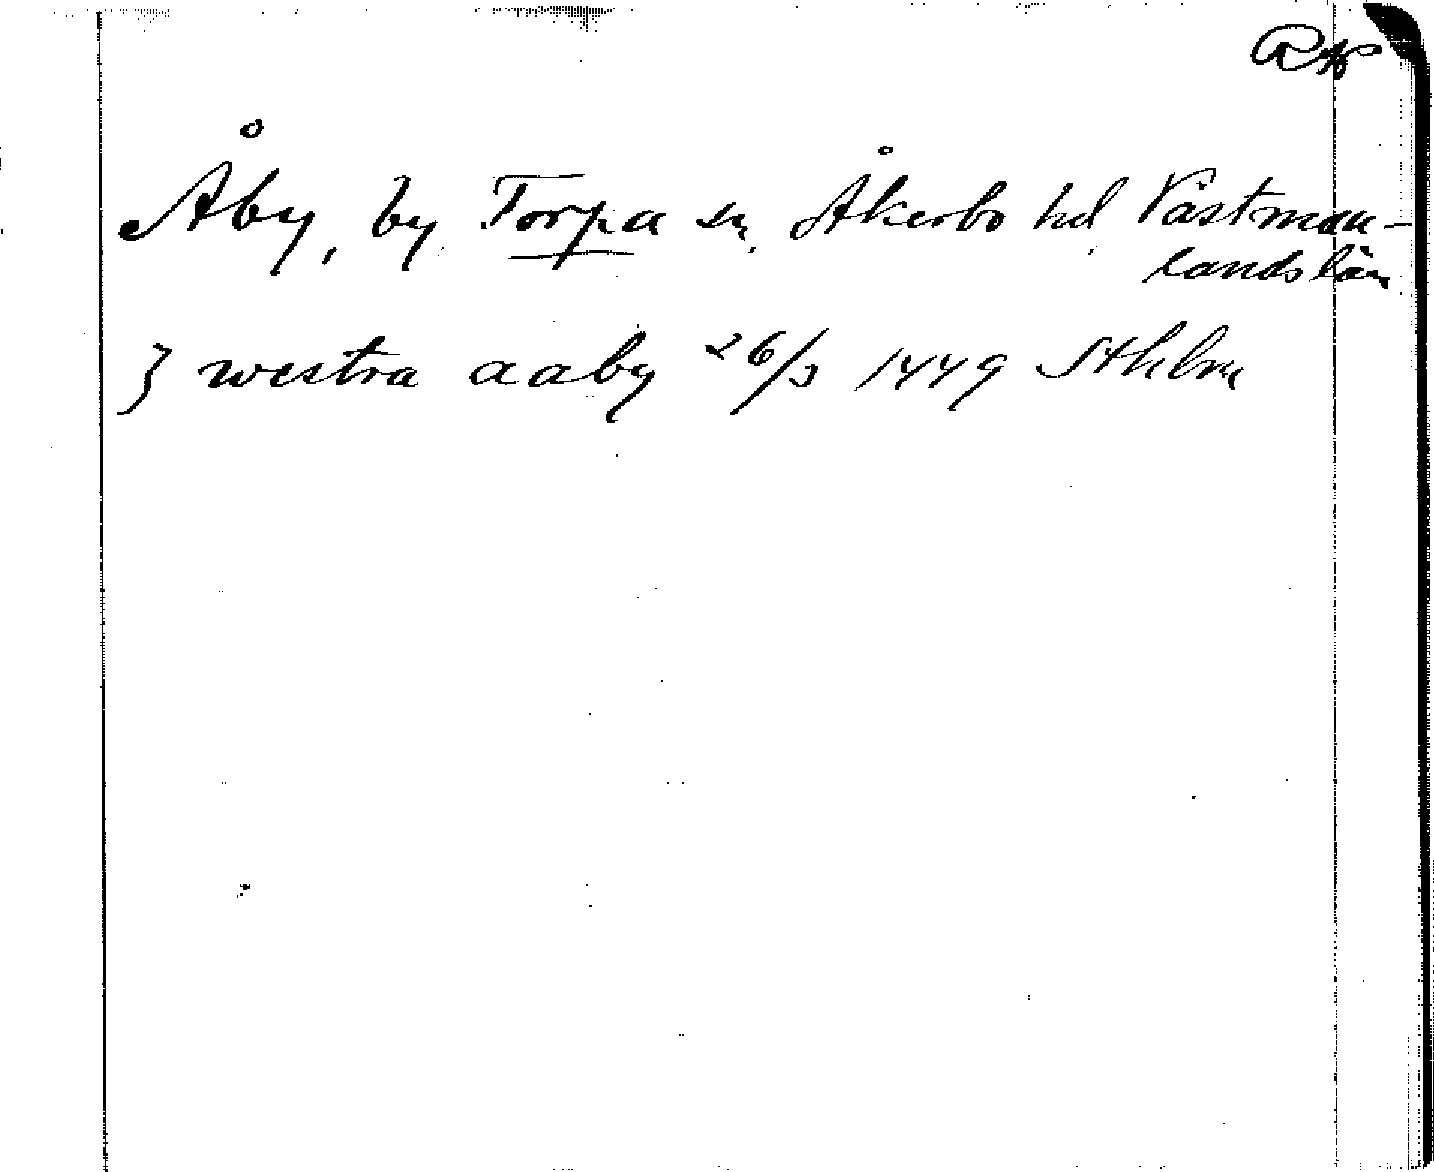 Åby, by, Torpa sn, Åkerbo hd Västman-
lands län
J westra aaby 26/3 1449 Sthlm